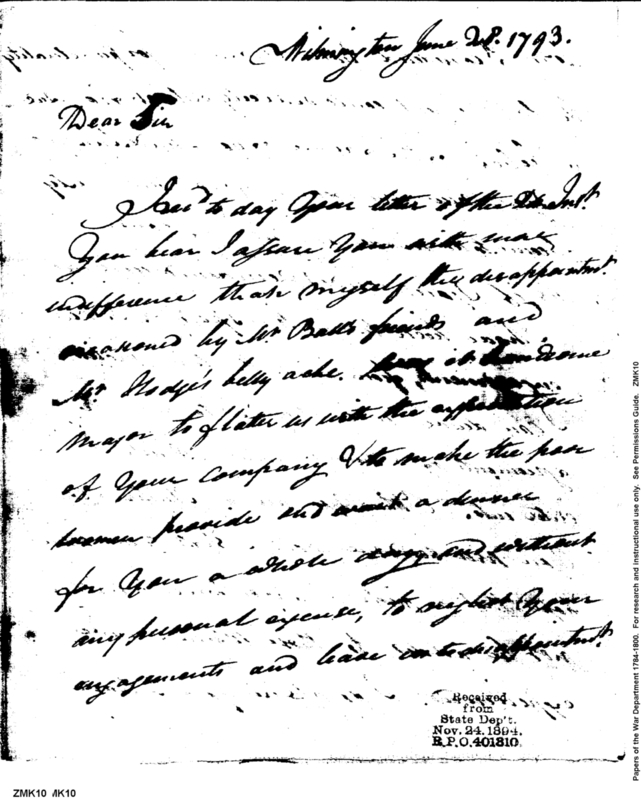 Wilmington June 28. 1793.
Dear Sir
I recd to day your letter of the Inst.
You bear I assure you with more
indifference than myself the disappointmt.
occasioned by Mr Batts friends and
Mr Hodge's belly ache. was it handsome
Major to flater us with the expectation
of your company & to make the poor
women provide and a dinner
for you a whole and without
any personal excuse, to neglect your
engagements and leave us to disappointmt.
Received
from
State Dep't.
Nov. 24. 1894.
R.P.O. 401310.
Papers of the War Department 1784-1800. For research and instructional use only. See Permissions Guide. ZMK10
ZMK10 /IK10